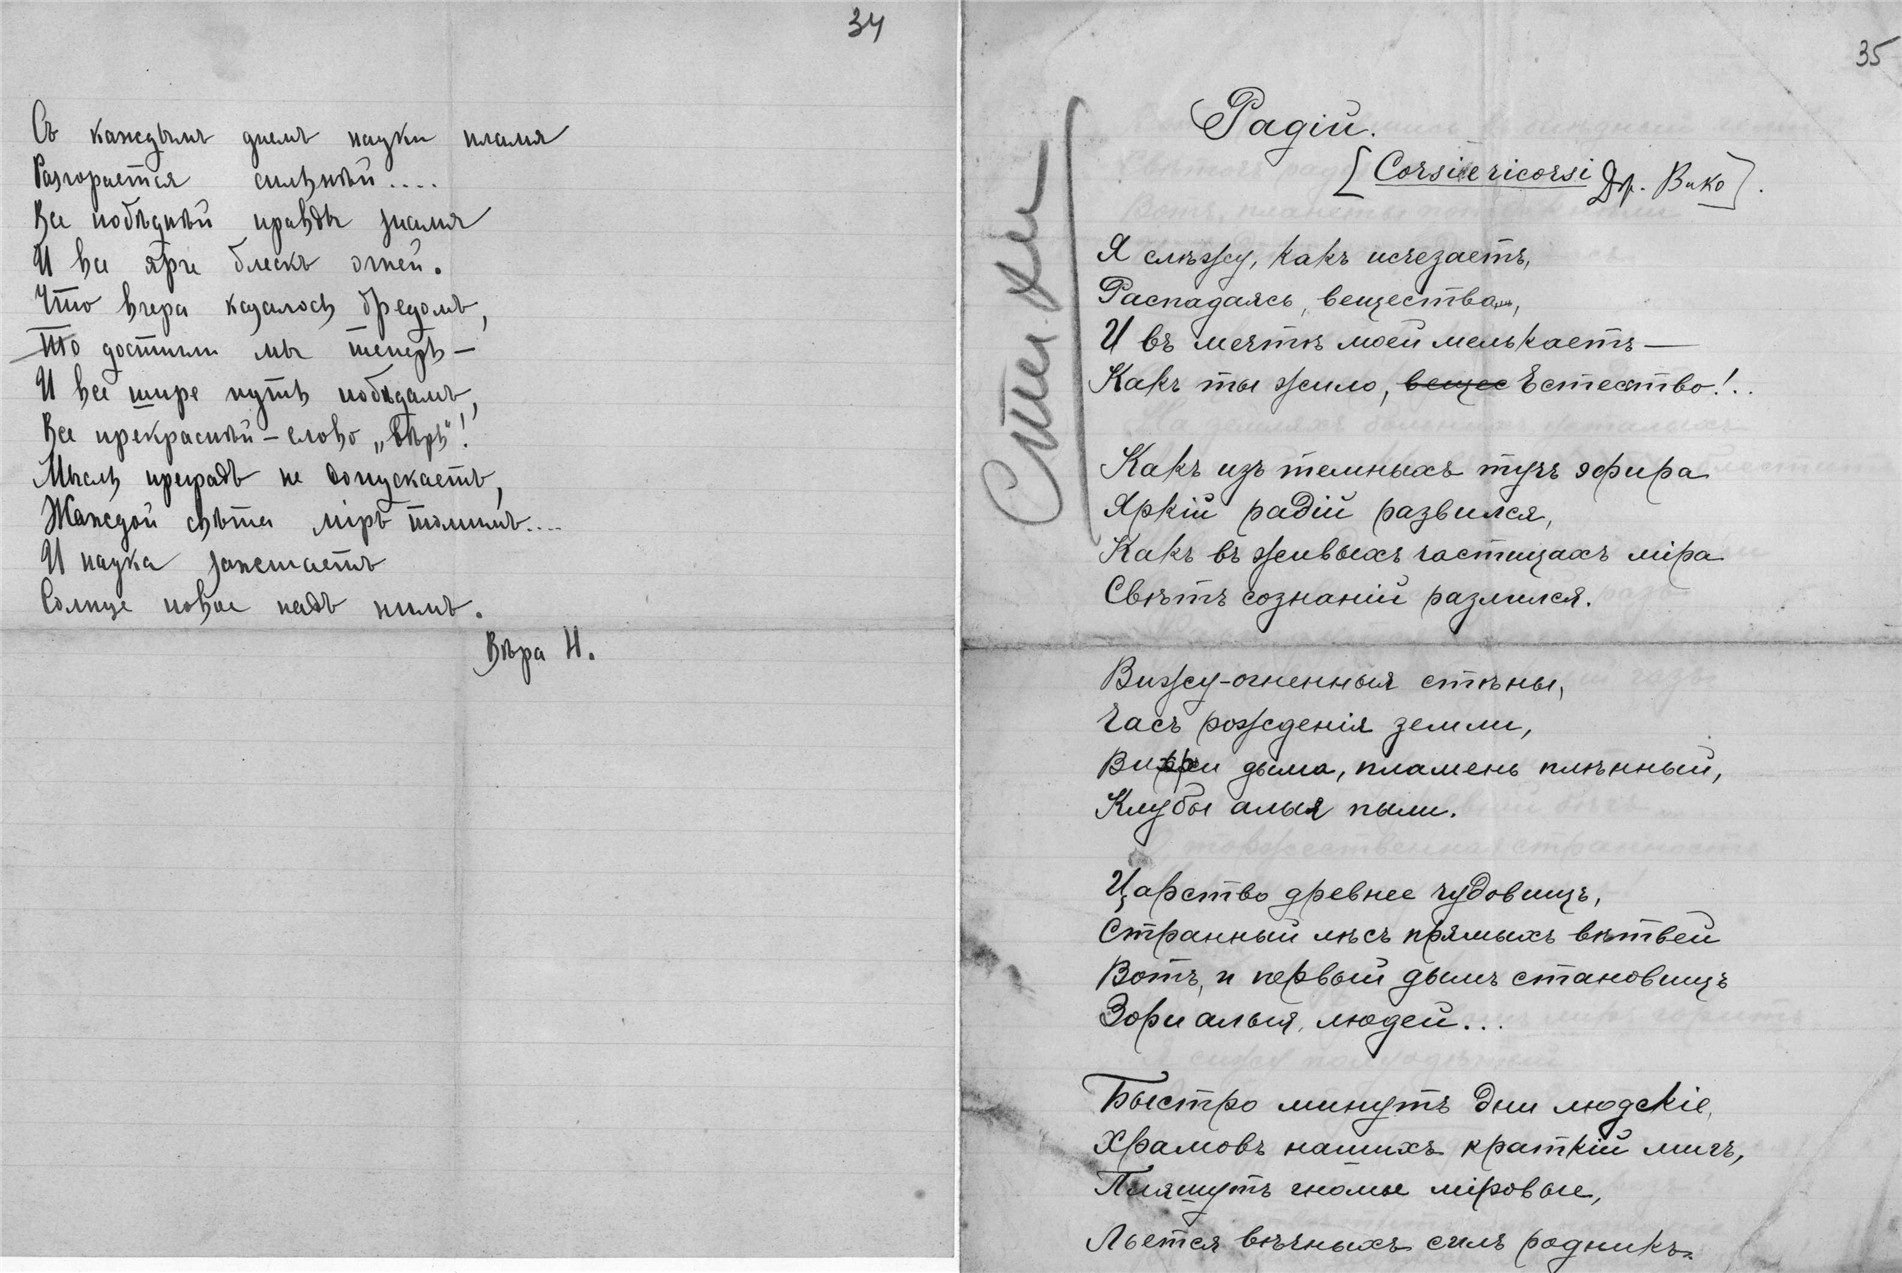 34
Съ каждымъ днемъ науки пламя
Разгорается сильнѣй....
Все побѣднѣй правды знамя
И все ярче блескъ огней.
Что вчера казалось бредомъ,
То достигли мы теперь —
И все шире путь побѣдамъ,
Все прекраснѣй – слово „вѣрь"!
Мысль преградъ не допускаетъ,
Жаждой свѣта міръ томимъ....
И наука зажигаетъ
Солнце новое надъ нимъ.
Вѣра Н.
35
Стихи
Радій.
[Corsi e ricorsi Дж. Вико].
Я слѣжу, какъ исчезаетъ,
Распадаясь, вещество,
И въ мечтѣ моей мелькаетъ —
Какъ ты жило, вещес Естество!..
Какъ изъ темныхъ тучъ эфира
Яркій радій развился,
Какъ въ живыхъ частицахъ міра
Свѣтъ сознаній разлился.
Вижу-огненныя стѣны,
Часъ рожденія земли,
Вихри дыма, пламень плѣнный,
Клубы алыя пыли.
Царство древнее чудовищъ,
Странный лѣсъ прямыхъ вѣтвей
Вотъ, и первый дымъ становищъ
Зори алыя, людей...
Быстро минутъ дни людскіе,
Храмовъ нашихъ краткій мигъ,
Пляшутъ гномы міровые,
Льется вѣчныхъ силъ родникъ.